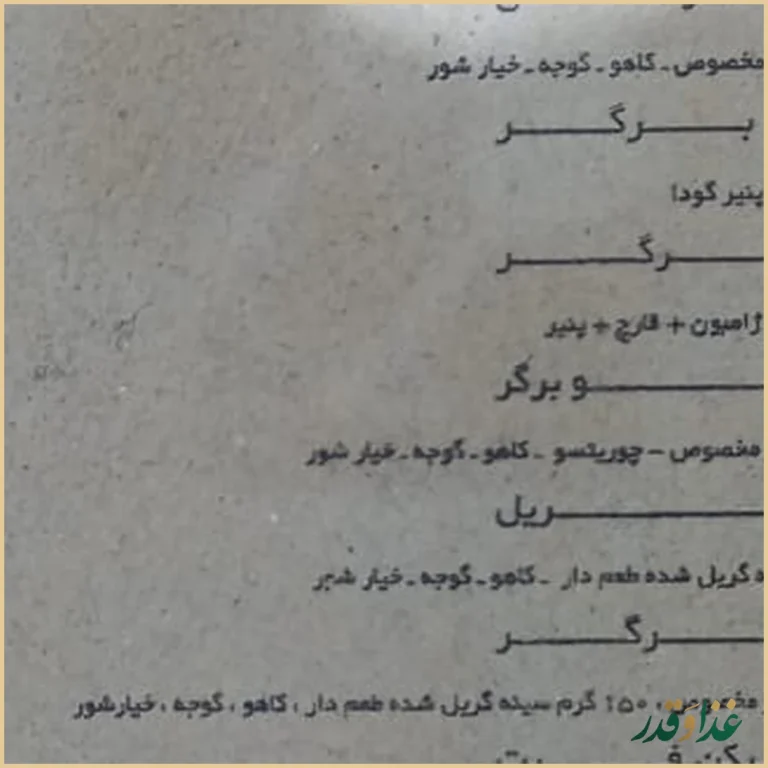 مخصوص - کاهو - گوجه - خیار شور
برگر
پنیر گودا
رگر
ژامبون + قارچ + پنیر
و برگر
مخصوص - چوریتسو - کاهو - گوجه - خیار شور
ریل
ه گریل شده طعم دار - کاهو - گوجه - خیار شور
رگر
مخصوص، ۲۵۰ گرم سینه گریل شده طعم دار، کاهو، گوجه، خیارشور
غذا و قدر